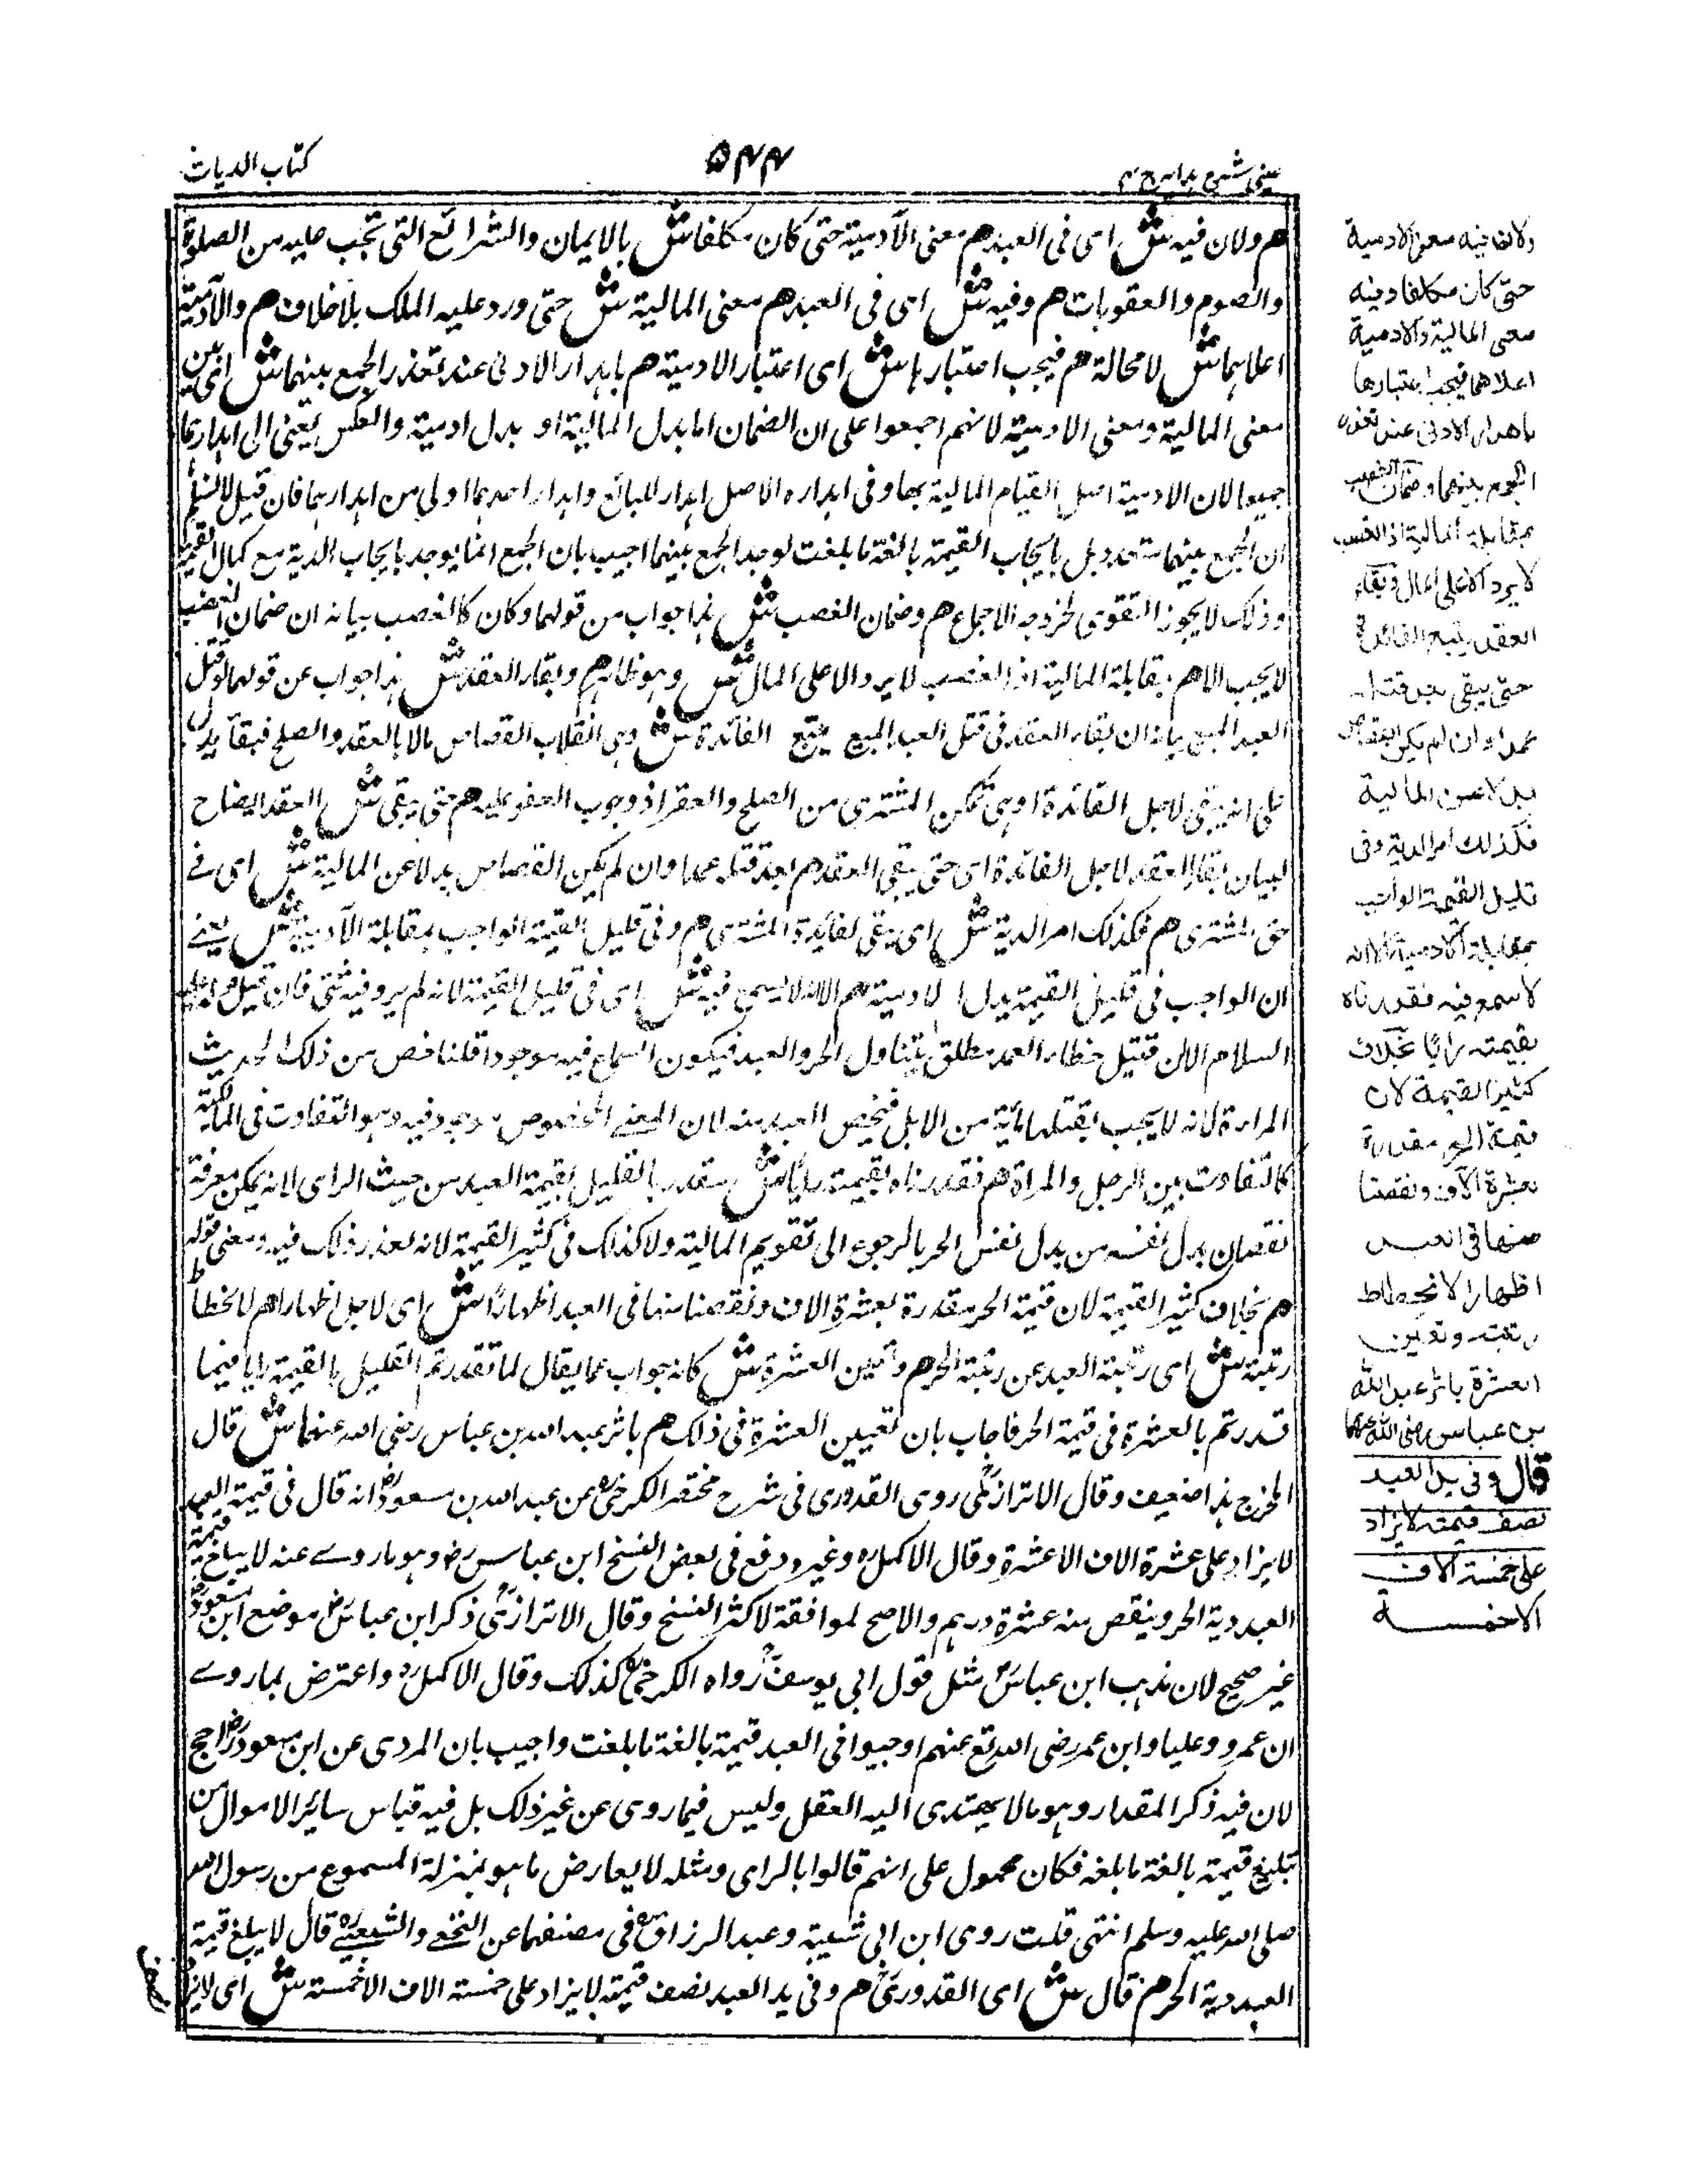 عینی شرح ہدایہ ج ۴
۵۴۴
كتاب الديات
هم ولان فيه ش اى فى العبد هم معنى الآدمية حتى كان مكلفا ش بالايمان والشرائع التى تجب عليه من الصلوة
والصوم والعقوبات هم وفيه ش اى فى العبد هم معنى المالية ش حتى ورد عليه الملك بلا خلاف هم والآدمية
اعلاهما ش لا محالة هم فيجب اعتبارها ش اى اعتبار الادمية هم باهدار الادنى عند تعذر الجمع بينهما ش اى بين
معنى المالية ومعنى الادمية لانهم اجمعوا على ان الضمان اما بدل المالية او بدل ادمية والعكس يعنى الى اهدارهما
جميعا لان الادمية اصل لقيام المالية بها وفى اهداره الاصل اهدار للبائع واهدار احدهما اولى من اهدارهما فان قيل لا نسلم
ان الجمع بينهما متعدد بل بايجاب القيمة بالغة ما بلغت لوجد الجمع بينهما اجيب بان الجمع انما يوجد بايجاب الدية مع كمال القيمة
وذلك لا يجوز التقوى لخروجه الاجماع هم وضمان الغصب ش هذا جواب من قولهما وكان كالغصب بيانه ان ضمان الغصب
لا يجب الا هم بمقابلة المالية اذ الغصب لا يرد الا على المال ش وهو ظاهر هم وبقاء العقد ش هذا جواب عن قولهما لو قتل
العبد المبيع بيانه ان بقاء العقد فى قتل العبد المبيع يتبع الفائدة ش وهى انقلاب القصاص مالا بالعقد والصلح فبقا يدل
على انه يبقى لاجل الفائدة او هى تمكن المشترى من الصلح والعقر اذ وجوب العفو عليه هم حتى يبقى ش العقد ايضا ح
لبيان بقاء العقد لاجل الفائدة اى حتى يبقى العقد هم بعد قتله عمدا وان لم يكن القصاص بدلا عن المالية ش اى فے
حق المشترى هم فكذلك امر الدية ش اى يبقى لفائدة المشترى هم وفى قليل القيمة الواجب بمقابلة الآدمية ش يعنے
ان الواجب فى قليل القيمة بدل الادمية هم الا انه لا يسمع فيه ش اى فى قليل القيمة لانه لم يرو فيه شئ فان قيل قوله عليه
السلام الا ان قتيل خطاء العمد مطلق يتناول الحر والعبد فيكون السماع فيه موجودا قلنا خص من ذلك الحديث
المراءة لانه لا يجب بقتلها مائة من الابل فيخص العبد منه لان المعنے المخصوص موجود فيه وهو التفاوت فى المالكية
كالتفاوت بين الرجل والمراة هم فقدرناه بقيمته رايا ش يتقدر بالقليل بقيمة العبد من حيث الراى لانه يمكن معرفة
نقصان بدل نفسه من بدل نفس الحر بالرجوع الى تقويم المالية ولا كذلك فى كثير القيمة لانه تعذر ذلك فيه ومعنى قوله
هم بخلاف كثير القيمة لان قيمة الحر مقدرة بعشرة الاف ونقصنا منها فى العبد اظهارا ش اى لاجل اظهارا هم لانحطاط
رتبته ش اى رتبة العبد عن رتبة الحر هم وتعيين العشرة ش كانه جواب عما يقال لما تقدرتم القليل بالقيمة رايا فيما
قدرتم بالعشرة فى قيمة الحر فاجاب بان تعيين العشرة فى ذلك هم باثر عبد الله بن عباس رضى الله عنهما ش قال
المخرج هذا ضعيف وقال الاترازى روى القدورى فى شرح مختصر الكرخى عن عبد الله بن مسعود انه قال فى قيمة العبد
لا يزاد على عشرة الاف الا عشرة وقال الاكمل وغيره وقع فى بعض النسخ ابن عباس رض وهو ما روے عنه لا يبلغ قيمة
العبد دية الحر وينقص منه عشرة درهم والاصح لموافقة لاكثر النسخ وقال الاترازى ذكر ابن عباس موضع ابن مسعود
غير صحيح لان مذهب ابن عباس مثل قول ابى يوسف رواه الكرخى كذلك وقال الاكمل واعترض بما روے
ان عمر وعليا وابن عمر رضى الله تع عنهم اوجبوا فى العبد قيمة بالغة ما بلغت واجيب بان المروى عن ابن مسعود راجح
لان فيه ذكر المقدار وهو مالا يهتدى اليه العقل وليس فيما روى عن غير ذلك بل فيه قياس سائر الاموال من
تبليغ قيمة بالغة ما بلغه فكان محمول على انهم قالوا بالراى ومثله لا يعارض ما هو بمنزلة المسموع من رسول الله
صلى الله عليه وسلم انتهى قلت روى ابن ابى شيبة وعبد الرزاق فى مصنفهما عن النخعے والشعبے قال لا يبلغ قيمة
العبد دية الحر هم قال ش اى القدورى هم وفى يد العبد نصف قيمته لا يزاد على خمسة الاف الا خمسة ش اى لا يزاد
ولان فيه معنى الادمية
حتى كان مكلفا وفيه
معنى المالية والادمية
اعلاهما فيجب اعتبارها
باهدار الادنى عند تعذر
الجمع بينهما وضمان الغصب
بمقابلة المالية اذ الغصب
لا يرد الا على المال وبقاء
العقد يتبع الفائدة
حتى يبقى بعد قتله
عمدا وان لم يكن القصاص
بدلا عن المالية
فكذلك امر الدية وفى
قليل القيمة الواجب
بمقابلة الآدمية الا انه
لا سمع فيه فقدرناه
بقيمته رايا بخلاف
كثير القيمة لان
قيمة الحر مقدرة
بعشرة آلاف ونقصنا
منها فى العبد
اظهارا لانحطاط
رتبته وتعيين
العشرة باثر عبد الله
بن عباس رضى الله عنهما
قال وفى يد العبد
نصف قيمته لا يزاد
على خمسة آلاف
الا خمسة